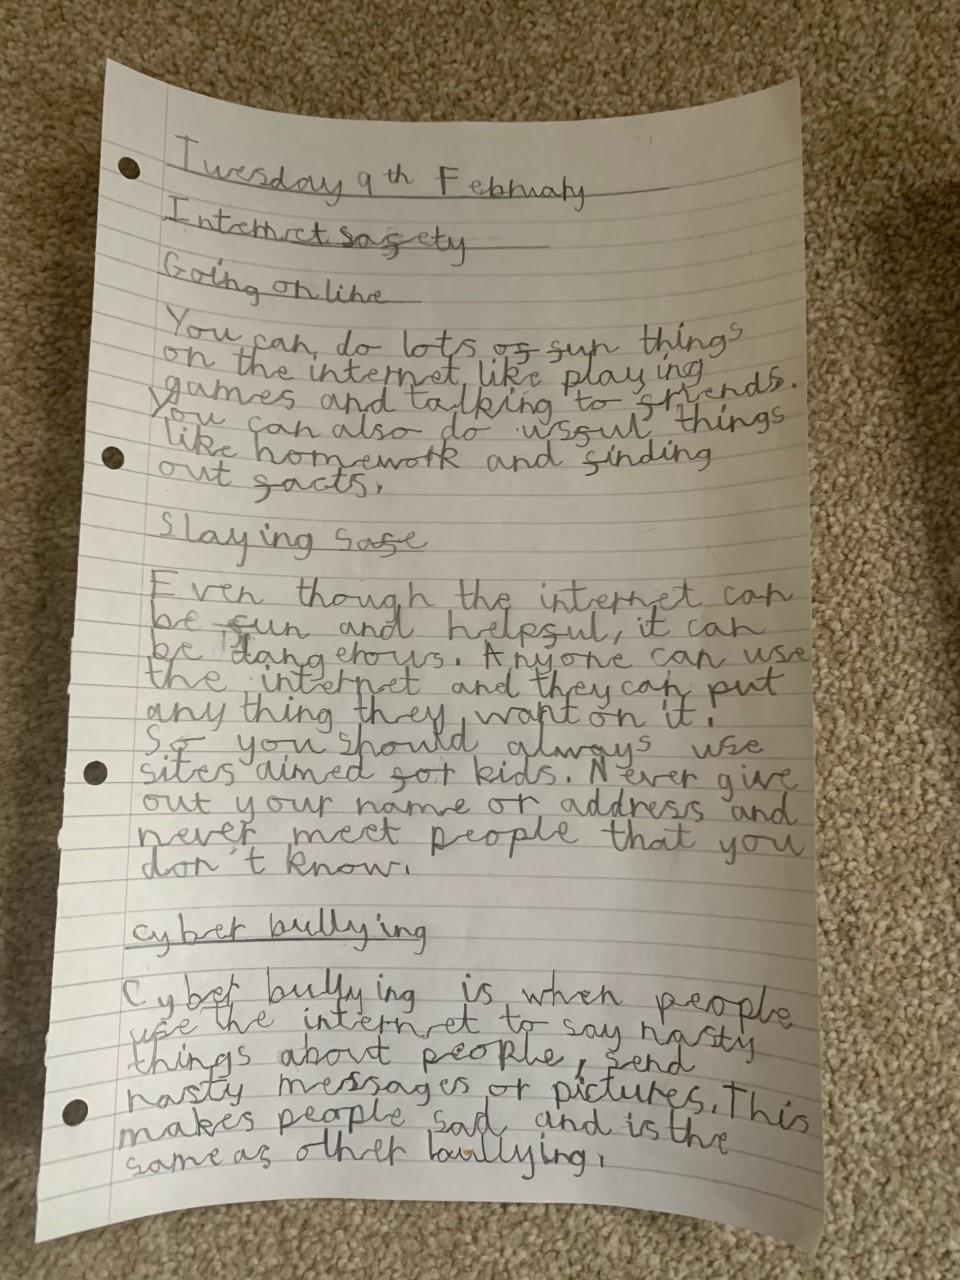 Tuesday 9th February
Internet safety
Going online
You can do lots of fun things
on the internet like playing
games and talking to friends.
You can also do useful things
like homework and finding
out facts.
Staying safe
Even though the internet can
be fun and helpful, it can
be dangerous. Anyone can use
the internet and they can put
any thing they want on it.
So you should always use
sites aimed for kids. Never give
out your name or address and
never meet people that you
don't know.
cyber bullying
Cyber bullying is when people
use the internet to say nasty
things about people, send
nasty messages or pictures. This
makes people sad and is the
same as other bullying.